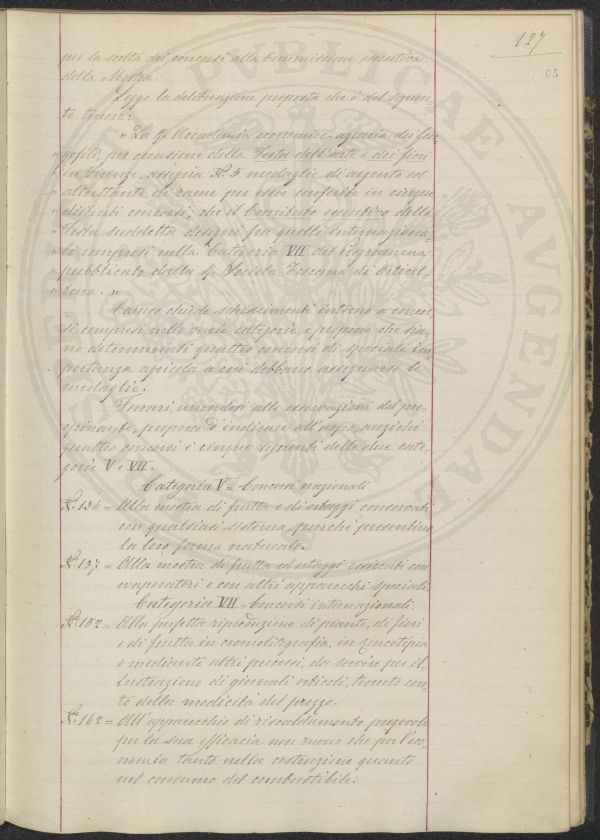 127
per la scelta dei concorsi alla Commissione esecutiva
della Mostra.
Legge la deliberazione proposta che è del seguen-
te tenore:
"La R. Accademia economico-agraria dei Geor-
"gofili, per occasione della Festa dell'arte e dei fiori
"in Firenze, assegna N.° 5 medaglie di argento ed
"altrettante di rame per esser conferite in cinque
"distinti concorsi, che il Comitato esecutivo della
"Festa suddetta designi fra quelli internaziona-
"li compresi nella Categoria VII del Programma
"pubblicato dalla R. Società Toscana di Orticul-
"tura."
Caruso chiede schiarimenti intorno a concor-
si compresi nelle varie categorie, e propone che sia-
no determinati quattro concorsi di speciale im-
portanza agricola a cui debbano assegnarsi le
medaglie.
Ferrari, unendosi alle osservazioni del pre-
opinante, propone d'indicare all'uopo, anzichè
quattro concorsi i cinque seguenti delle due cate-
gorie V e VII.
Categoria V = Concorsi nazionali
N.° 136 = Alla mostra di frutta e di ortaggi conservati
con qualsiasi sistema, purchè presentino
la loro forma naturale.
N.° 137 = Alla mostra di frutta ed ortaggi essiccati con
evaporatori e con altri apparecchi speciali.
Categoria VII = Concorsi internazionali.
N.° 152 = Alla perfetta riproduzione di piante, di fiori
e di frutta in cromolitografia, in zincotipia
e mediante altri processi, da servire per il-
lustrazione di giornali orticoli, tenuto con-
to della modicità del prezzo.
N.° 162 = All'apparecchio di riscaldamento pregevole
per la sua efficacia non meno che per l'eco-
nomia tanto nella costruzione quanto
nel consumo del combustibile.